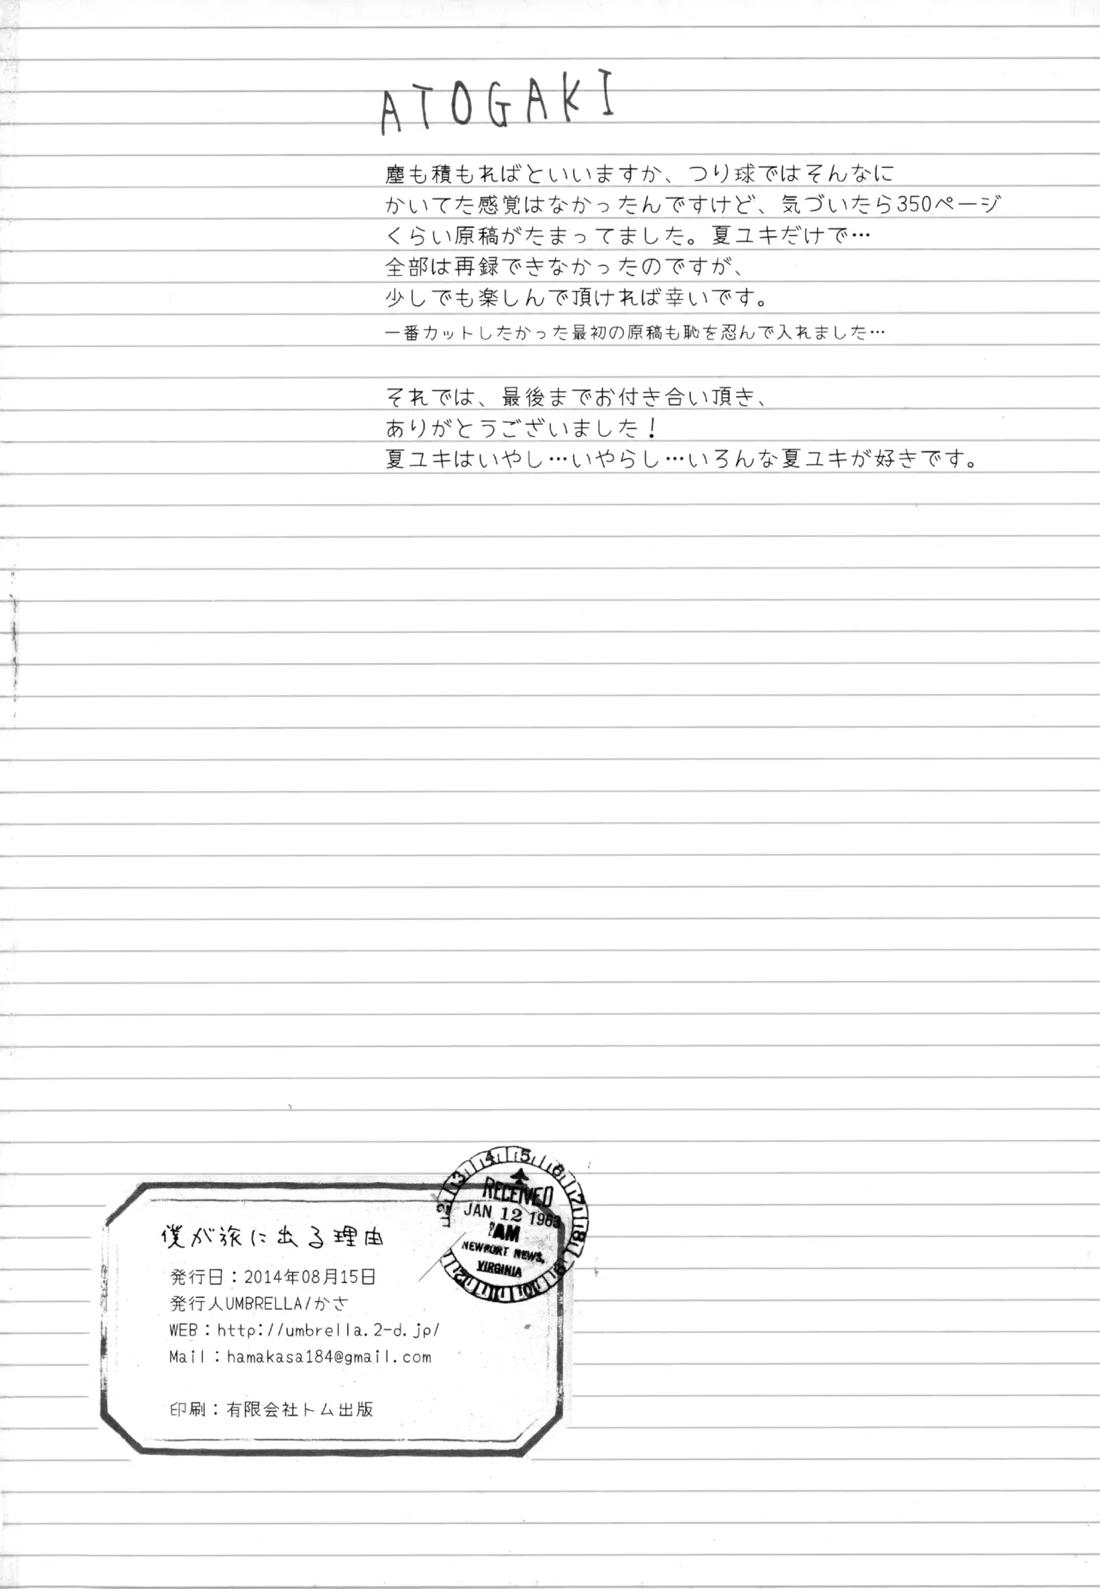 ATOGAKI
塵も積もればといいますか、つり球ではそんなに
かいてた感覚はなかったんですけど、気づいたら350ページ
くらい原稿がたまってました。夏ユキだけで…
全部は再録できなかったのですが、
少しでも楽しんで頂ければ幸いです。
一番カットしたかった最初の原稿も恥を忍んで入れました…
それでは、最後までお付き合い頂き、
ありがとうございました！
夏ユキはいやし…いやらし…いろんな夏ユキが好きです。
僕が旅に出る理由
発行日：2014年08月15日
発行人UMBRELLA/かさ
WEB：http://umbrella.2-d.jp/
Mail：hamakasa184@gmail.com
印刷：有限会社トム出版
RECEIVED
JAN 12 1963
AM
NEWPORT NEWS,
VIRGINIA